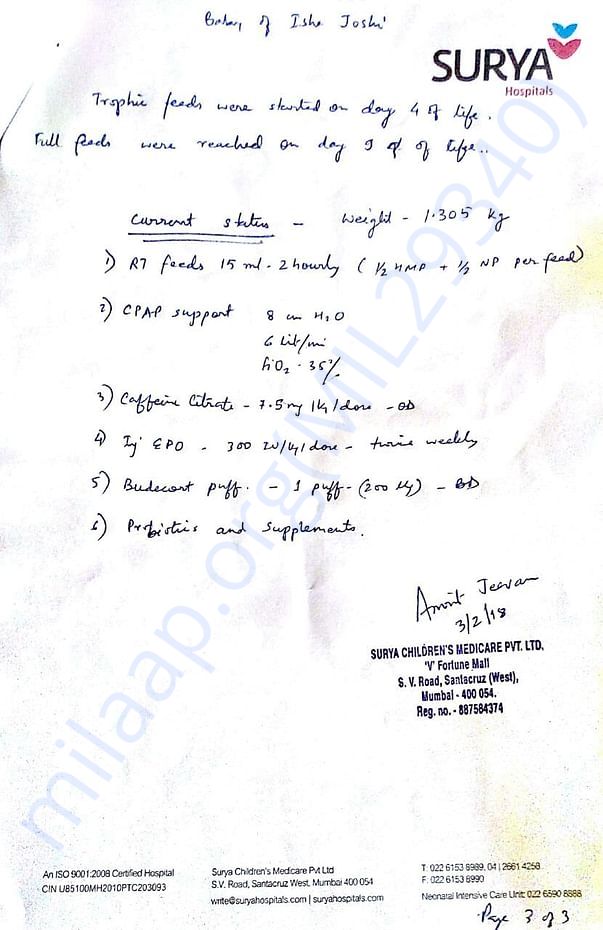 Baby of Isha Joshi
SURYA
Hospitals
Trophic feeds were started on day 4 of life.
Full feeds were reached on day 9 of life..
Current status - Weight - 1.305 kg
1) RT feeds 15 ml - 2 hourly ( 1/2 HMF + 1/2 NP per feed)
2) CPAP support 8 cm H2O
6 lit/mi
FiO2 - 35%
3) Caffeine Citrate - 7.5 mg/kg/dose - OD
4) Inj EPO - 300 IU/kg/dose - twice weekly
5) Budecort puff. - 1 puff - (200 µg) - BD
6) Probiotics and supplements.
Amrit Jeevan
3/2/18
SURYA CHILDREN'S MEDICARE PVT. LTD.
'V' Fortune Mall
S. V. Road, Santacruz (West),
Mumbai - 400 054.
Reg. no. - 887584374
milaap.org(MIL29340)
An ISO 9001:2008 Certified Hospital
CIN U85100MH2010PTC203093
Surya Children's Medicare Pvt Ltd
S.V. Road, Santacruz West, Mumbai 400 054
write@suryahospitals.com | suryahospitals.com
T: 022 6153 8989, 04 | 2661 4258
F: 022 6153 8990
Neonatal Intensive Care Unit: 022 6590 8888
Page 3 of 3